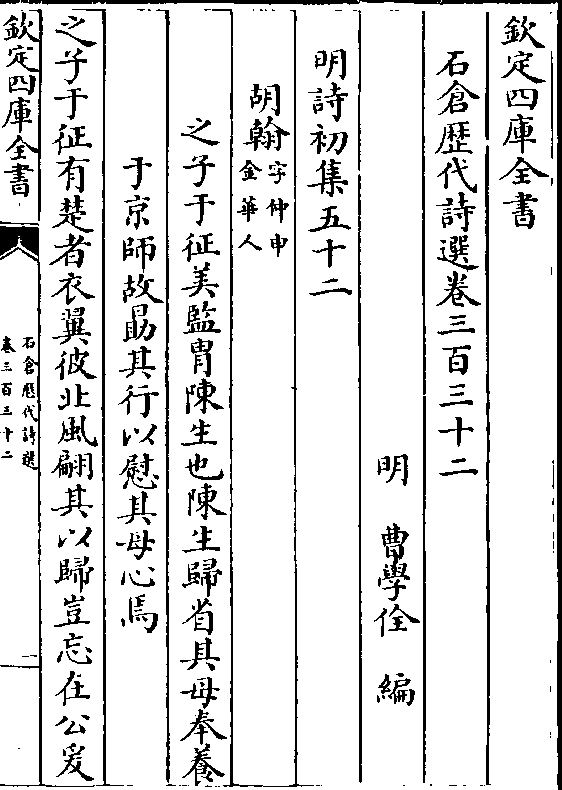 欽定四庫全書
石倉歴代詩選卷三百三十二
明 曹學佺 編
明詩初集五十二
胡翰字仲申
金華人
之子于征美監胄陳生也陳生歸省其母奉養
于京師故勗其行以慰其母心焉
之子于征有楚者衣翼彼北風翩其以歸豈忘在公爰
欽定四庫全書
石倉歴代詩選
卷三百三十二
一